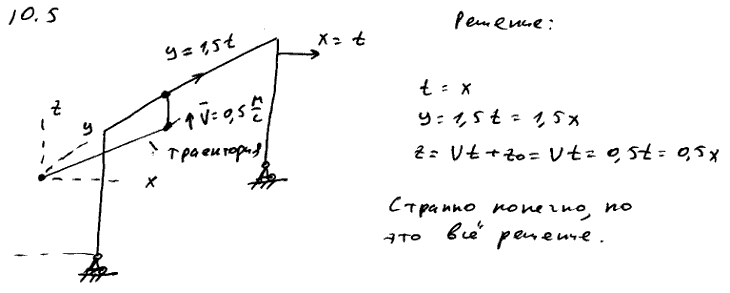 10.5
Решение:
y = 1,5t
x = t
z
y
V̄ = 0,5 м/с
траектория
x
t = x
y = 1,5t = 1,5x
z = Vt + z₀ = Vt = 0,5t = 0,5x
Странно конечно, но
это всё решение.